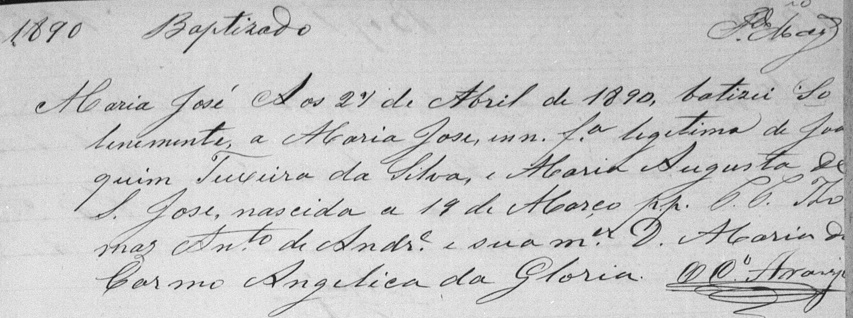 1890 Baptizado
Maria José Aos 27 de Abril de 1890, batizei So
lenemente, a Maria Jose, inn. f.ª legitima de Joa
quim Teixeira da Silva, e Maria Augusta de
S. Jose, nascida a 19 de Março, pp. C. C. Tho
maz Ant.to de Andr.e e sua m.er D. Maria do
Carmo Angelica da Gloria. O C.o Araujo